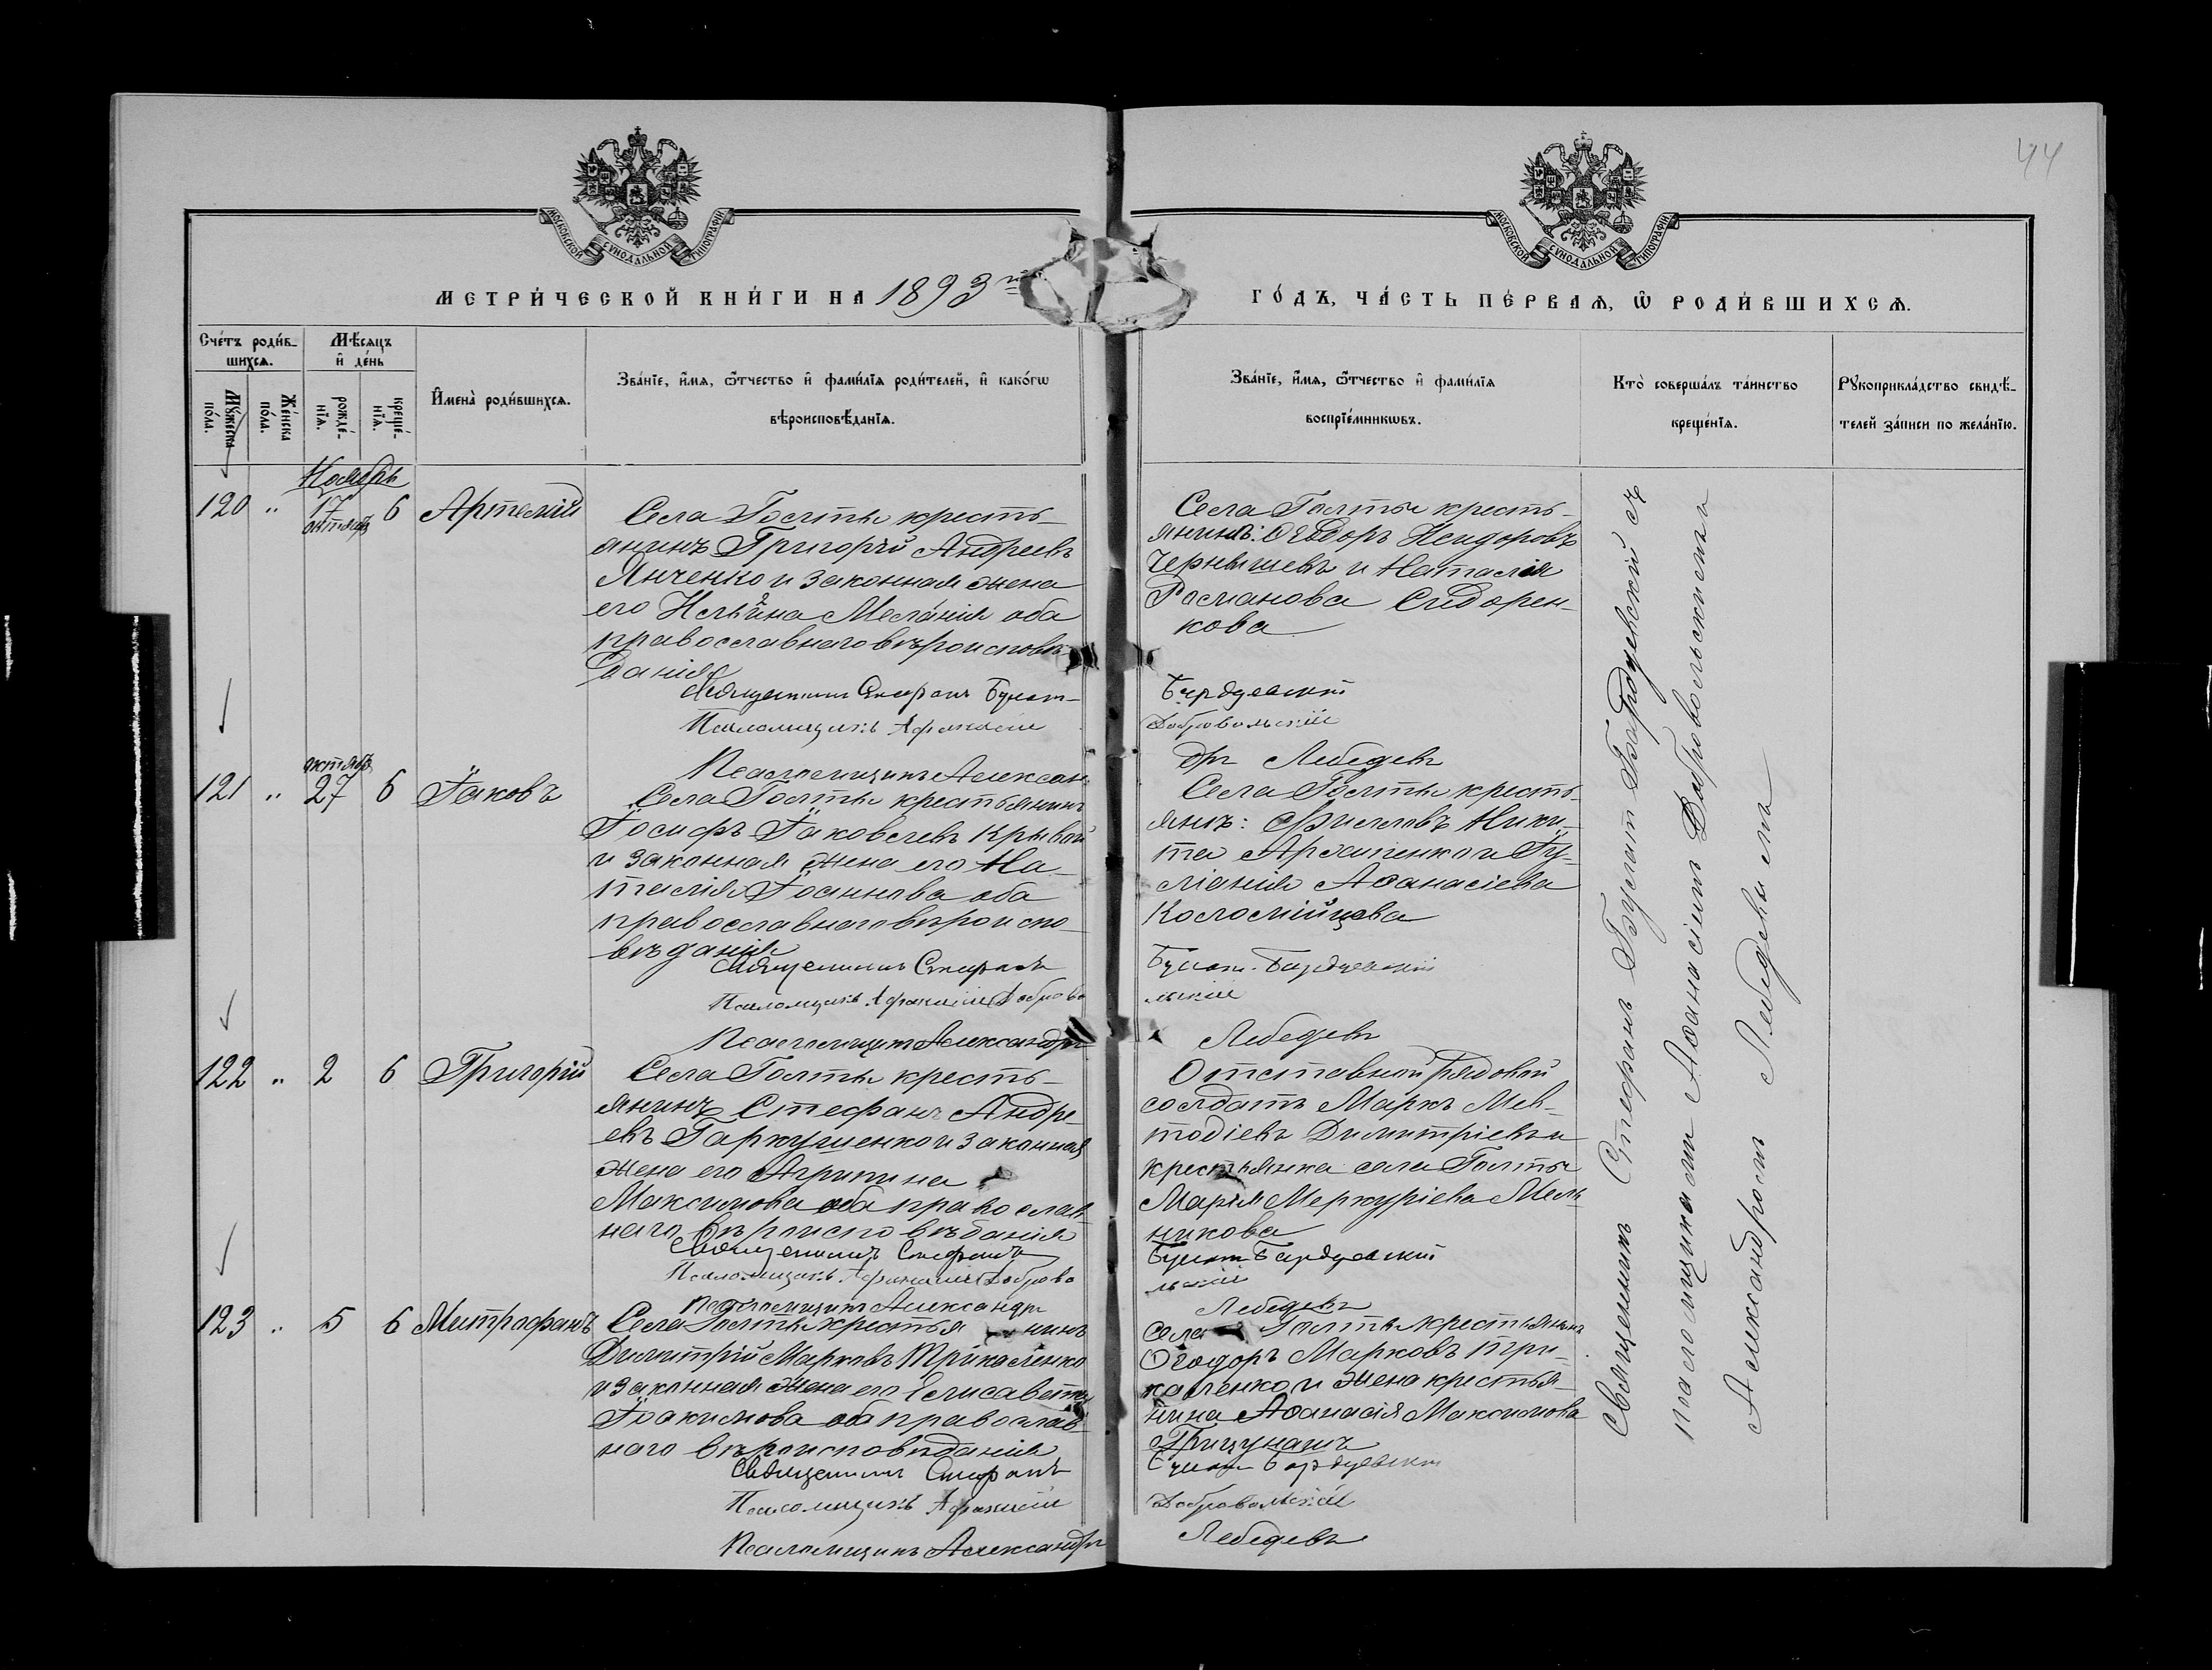 44
МОСКОВСКОЙ СѴНОДАЛЬНОЙ ТИПОГРАФІИ
МОСКОВСКОЙ СѴНОДАЛЬНОЙ ТИПОГРАФІИ
МЕТРИ́ЧЕСКОЙ КНИ́ГИ НА 1893 й
ГО́ДЪ, ЧА́СТЬ ПЕ́РВАѦ, Ѽ РОДИ́ВШИХСѦ.
Сче́тъ роди́в-
шихсѧ.
Мꙋжеска по́ла.
Же́нска по́ла.
Мѣ́сѧцъ
и҆ де́нь
рожде́-
нїѧ.
креще́-
нїѧ.
И҆мена̀ роди́вшихсѧ.
Зва́нїе, и҆́мѧ, ѻ҆́тчество и҆ фамі́лїѧ роди́телей, и҆ како́гѡ
вѣроисповѣ́данїѧ.
Зва́нїе, и҆́мѧ, ѻ҆́тчество и҆ фамі́лїѧ
воспрїе́мникѡвъ.
Кто̀ соверша́лъ та́инство
креще́нїѧ.
Рꙋкоприкла́дство свидѣ́-
телей за́писи по жела́нїю.
Ноябрь
120 " 17 октября 6 Артемій
Села Голты кресть-
янинъ Григорій Андреевъ
Янченко и законная жена
его Ильина Меланія оба
православнаго вѣроисповѣ-
данія
Священникъ Стефанъ Бунят-
Псаломщикъ Афанасій
Псаломщикъ Алексан-
Села Голты кресть-
янинъ: Ѳеодоръ Исидоровъ
Чернышевъ и Наталія
Романова Сидорен-
кова
Бардуевскій
Добровольскій
дръ Лебедевъ
121 " октября 27 6 Іаковъ
Села Голты крестьянинъ
Іосифъ Іаковлевъ Крывой
и законная жена его На-
талія Іоаннова оба
православнаго вѣроиспо-
вѣданія
Священникъ Стефанъ
Псаломщикъ Афанасій Доброво
Псаломщикъ Александръ
Села Голты кресть-
янъ: Филиповъ Ники-
та Архипенко и Іу-
ліанія Аѳанасіева
Коломійцева
Бунят. Бардуевскій
льскій
Лебедевъ
122 " 2 6 Григорій
Села Голты кресть-
янинъ Стефанъ Андре-
евъ Гаркушенко и законная
жена его Агрипина
Максимова оба православ-
наго вѣроисповѣданія
Священникъ Стефанъ
Псаломщикъ Афанасій Доброво
Псаломщикъ Александръ
Отставной рядовой
солдатъ Маркъ Меѳ-
тодіевъ Димитріевъ и
крестьянка села Голты
Марія Меркуріева Мель-
никова
Бунят Бардуевскій
льскій
Лебедевъ
123 " 5 6 Митрофанъ
Села Голты крестьянинъ
Димитрій Марковъ Триколенко
и законная жена его Елисавета
Іоакимова оба православ-
наго вѣроисповѣданія
Священникъ Стефанъ
Псаломщикъ Афанасій
Псаломщикъ Александръ
Села Голты крестьянинъ
Ѳеодоръ Марковъ Три-
коленко и жена крестья-
нина Аѳанасія Максимова
Бунят Бардуевскій
Добровольскій
Лебедевъ
Священникъ Стефанъ Бунят Бардуевскій съ
псаломщиками Аѳанасіемъ Добровольскимъ
Александромъ Лебедевымъ